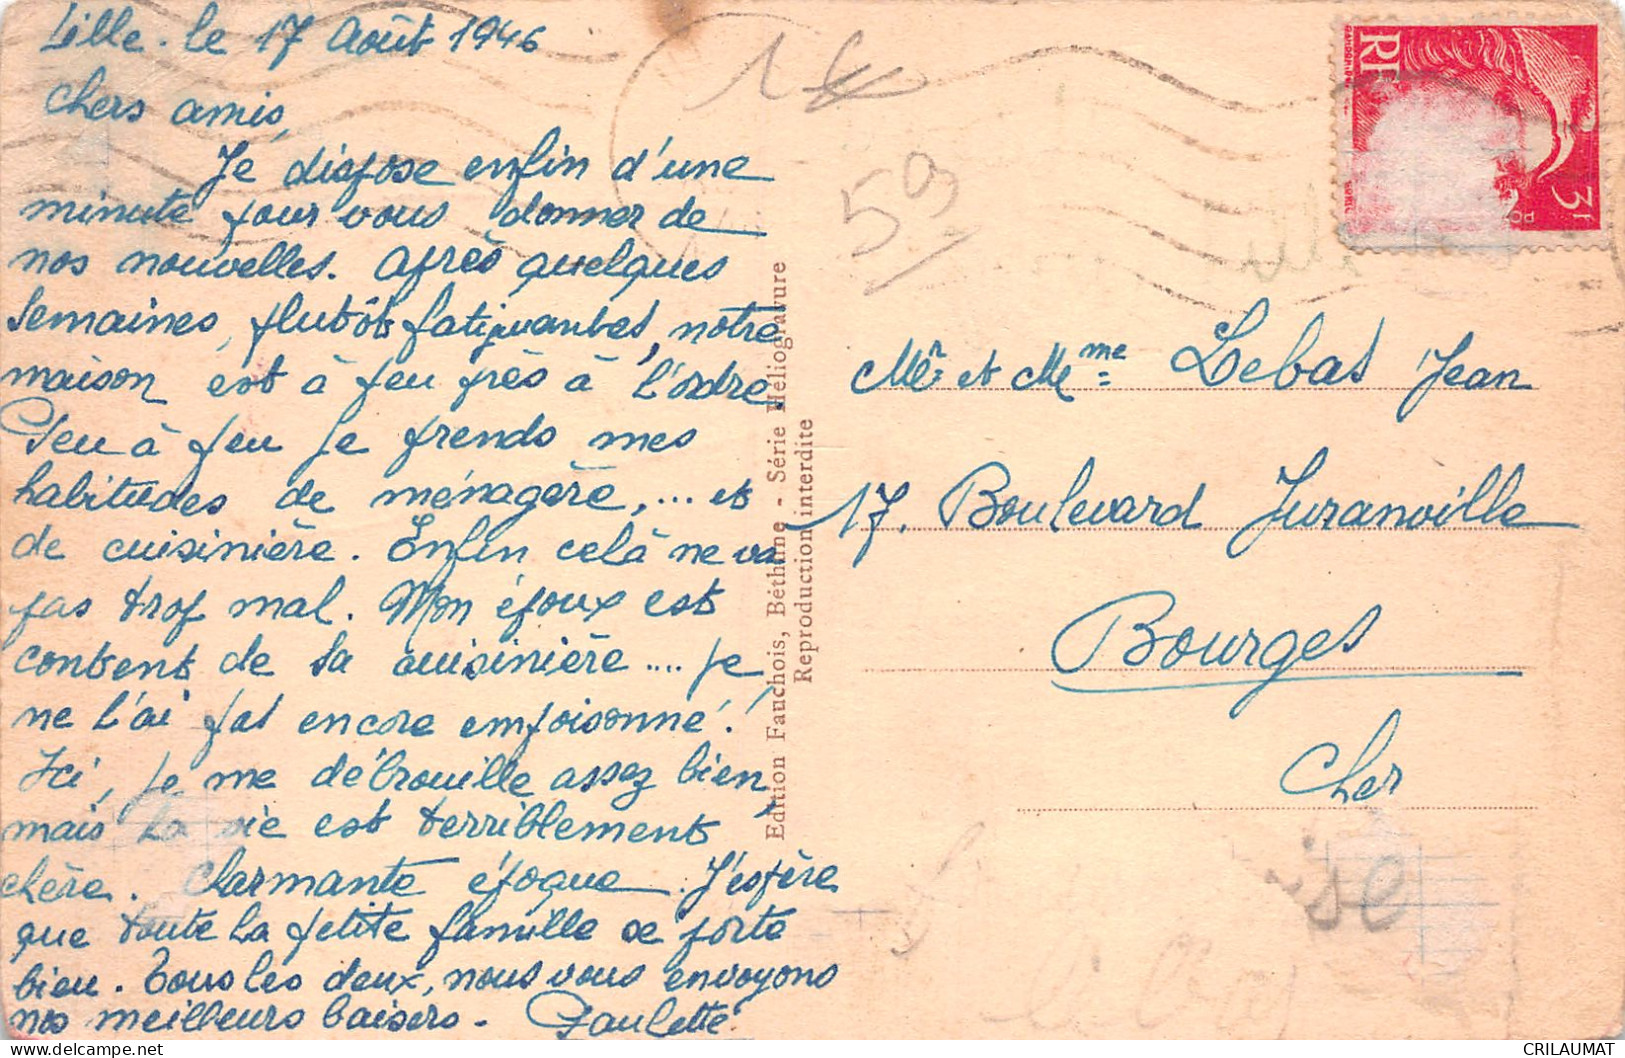 Lille. le 17 Août 1946
Chers amis,
Je dispose enfin d'une
minute pour vous donner de
nos nouvelles. Après quelques
semaines, plutôt fatiguantes, notre
maison est à peu près à l'ordre.
Peu à peu je prends mes
habitudes de ménagère, ... et
de cuisinière. Enfin celà ne va
pas trop mal. Mon époux est
content de sa cuisinière .... je
ne l'ai pas encore empoisonné!
Ici, je me débrouille assez bien,
mais la vie est terriblement
chère. Charmante époque. J'espère
que toute la petite famille se porte
bien. Tous les deux, nous vous envoyons
nos meilleurs baisers. Paulette.
Edition Fauchois, Béthune - Série Héliogravure
Reproduction interdite
59
RF
3f
Mr et Mme Lebas Jean
17. Boulevard Juranville
Bourges
Cher
CRILAUMAT